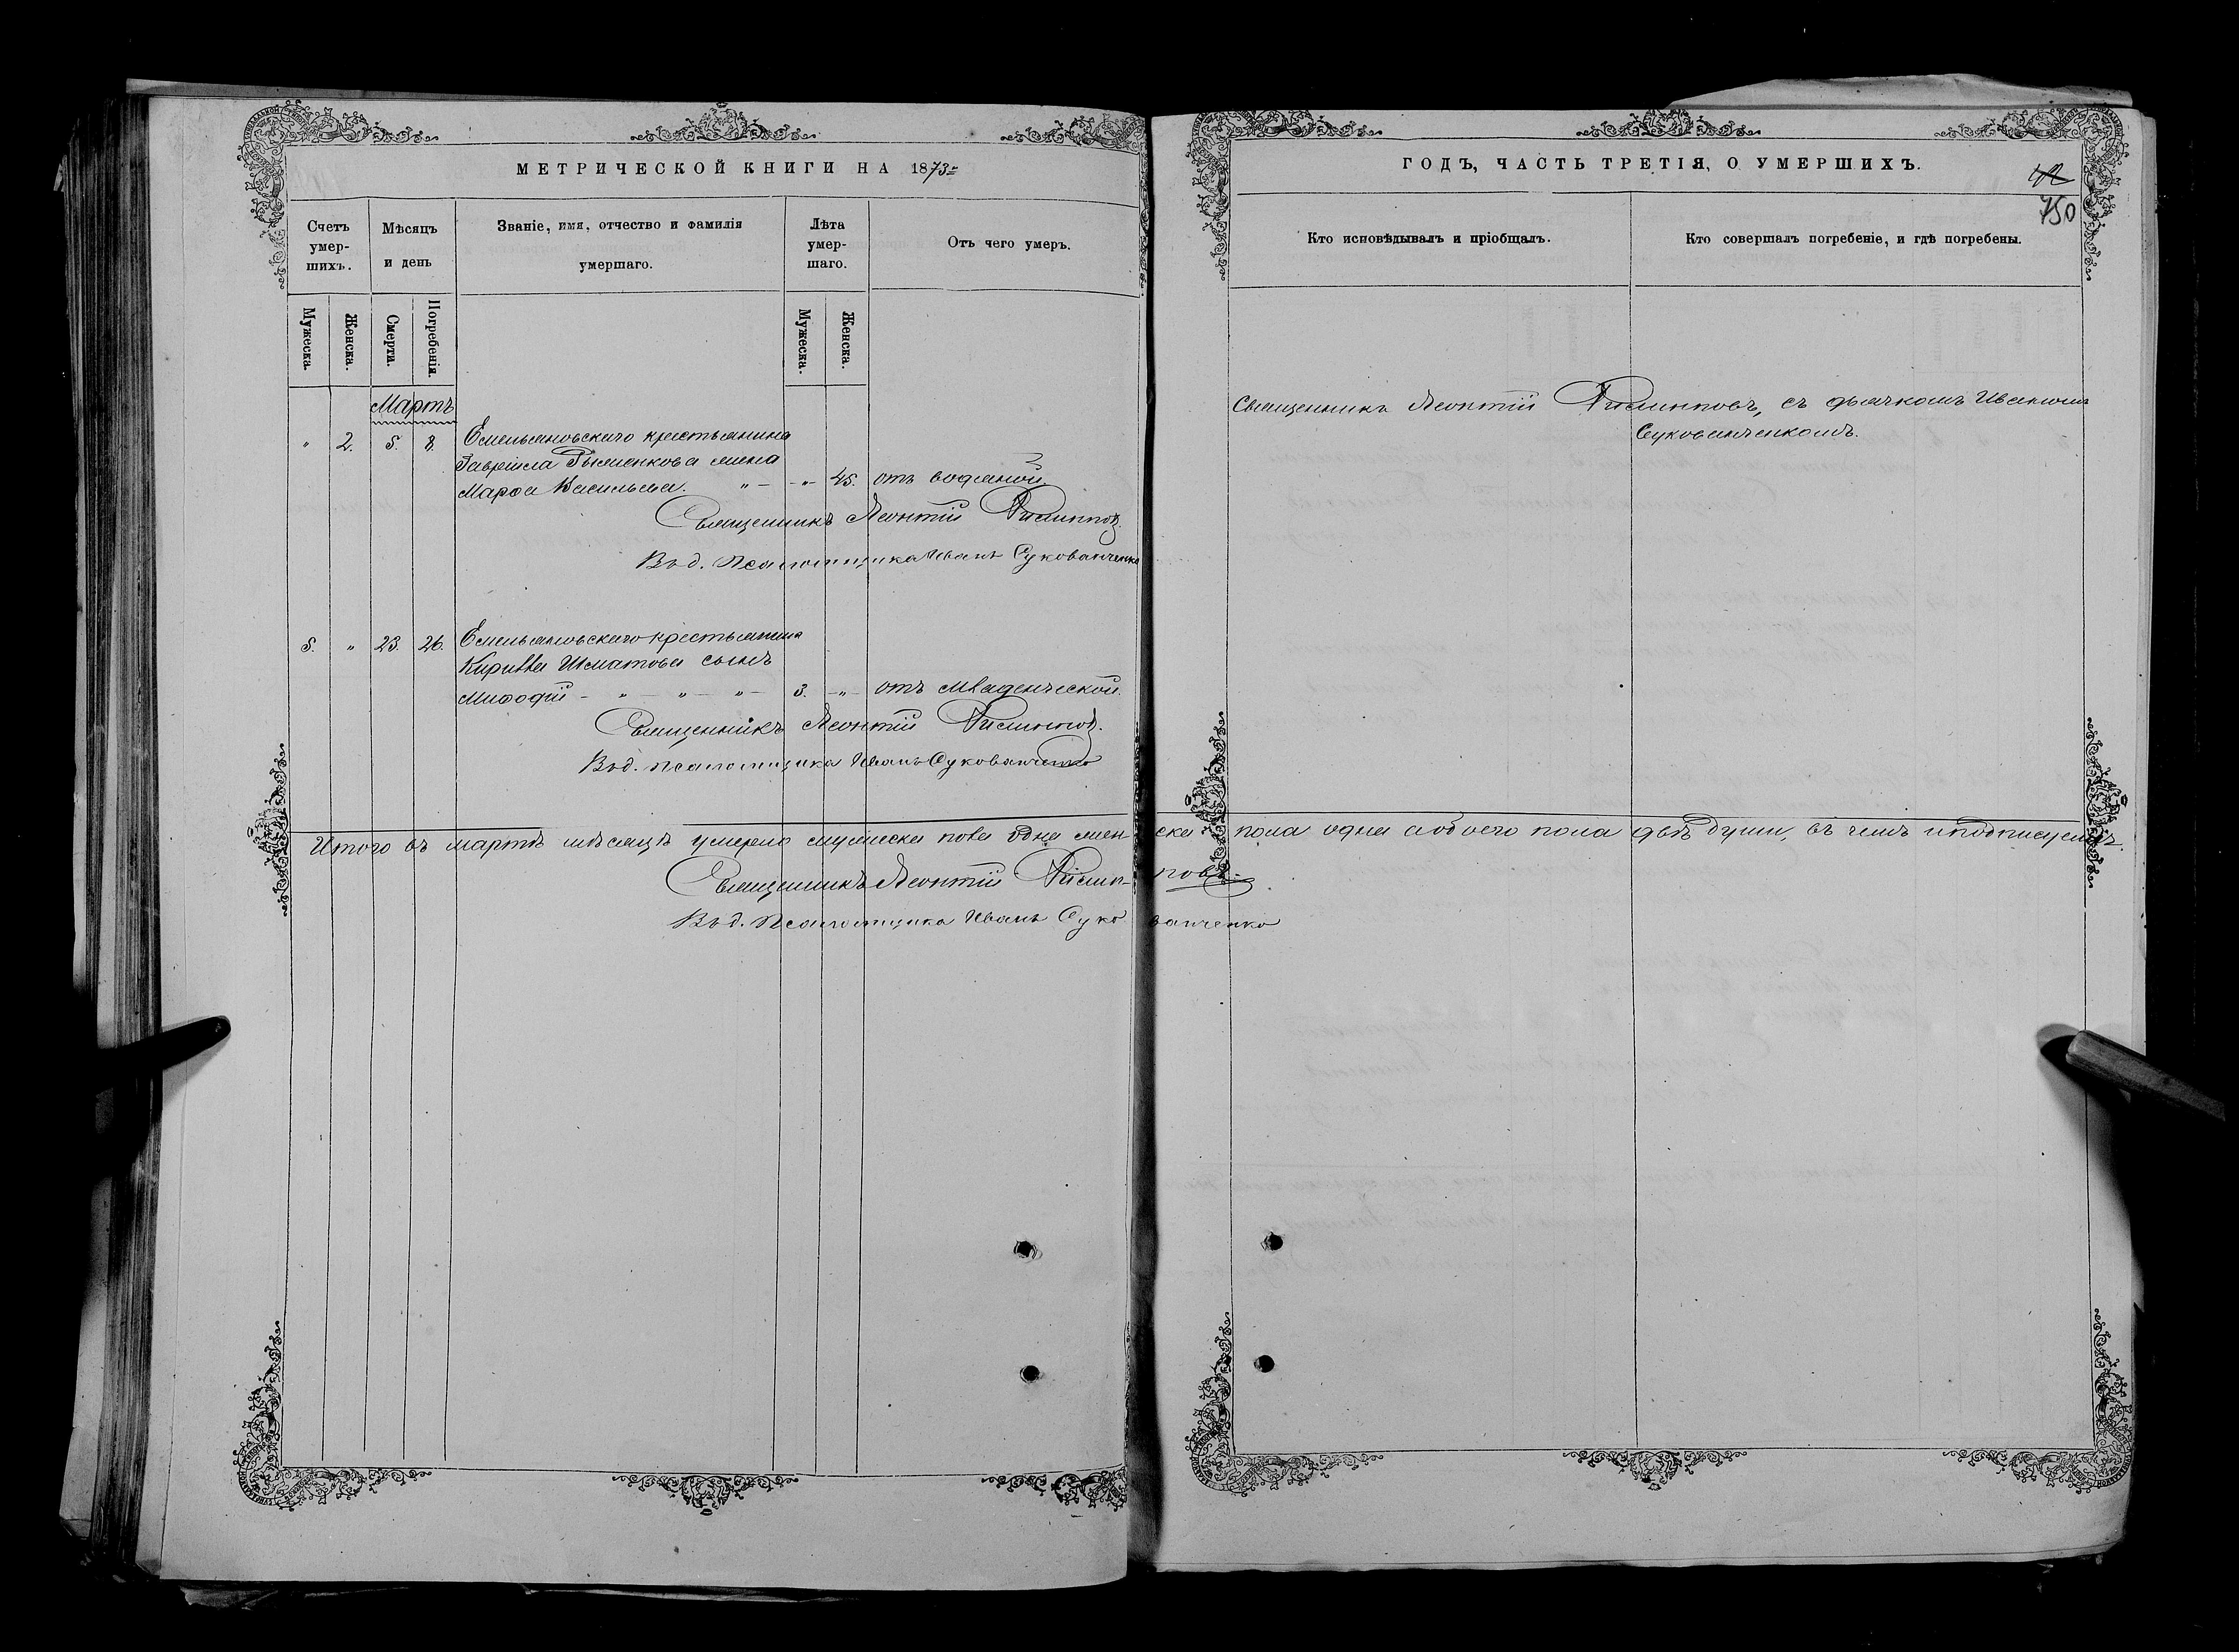 МЕТРИЧЕСКОЙ КНИГИ НА 1873
Счетъ умершихъ.
Мѣсяцъ и день
Званіе, имя, отчество и фамилія умершаго.
Лѣта умершаго.
Отъ чего умеръ.
Мужеска.
Женска.
Смерти.
Погребенія.
Мужеска.
Женска.
Мартъ
" 2. 5. 8. Емельяновскаго крестьянина
жена
Марфа Васильева. " - - " - 45. отъ водяной
Священникъ Леонтій Филипповъ.
Въ д. Псаломщика Иванъ Суковатченко
5. " 23. 26. Емельяновскаго крестьянина
Кирилла Шматова сынъ
Мифодій - " - " - " - 3. - " - отъ младенческой.
Священникъ Леонтій Филипповъ.
Въ д. псаломщика Иванъ Суковатченко
Итого въ мартѣ мѣсяцѣ умерло мужеска пола одна жен-
Священникъ Леонтій Филип-
Въ д. Псаломщика Иванъ Суко
ГОДЪ, ЧАСТЬ ТРЕТІЯ, О УМЕРШИХЪ.
42
750
Кто исповѣдывалъ и пріобщалъ.
Кто совершалъ погребеніе, и гдѣ погребены.
Священникъ Леонтій Филипповъ, съ дьячкомъ Иваномъ
Суковатченкомъ.
ска пола одна а обоего пола двѣ души, въ чемъ и подписуемъ
повъ.
ватченко